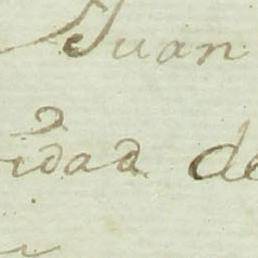 Juan
idad de